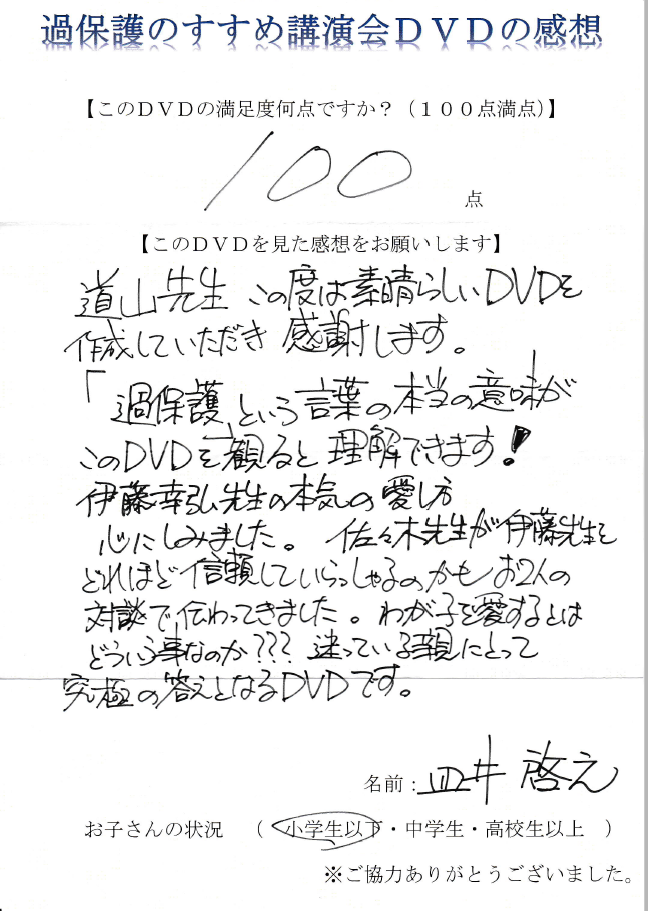 過保護のすすめ講演会DVDの感想
【このDVDの満足度何点ですか?(100点満点)】
100
点
【このDVDを見た感想をお願いします】
道山先生 この度は素晴らしいDVDを
作成していただき 感謝します。
「過保護」という言葉の本当の意味が
このDVDを観ると理解できます!
伊藤幸弘先生の本気の愛し方
心にしみました。 佐々木先生が伊藤先生を
どれほど信頼していらっしゃるのかもお2人の
対談で伝わってきました。わが子を愛するとは
どういう事なのか??? 迷っている親にとって
究極の答えとなるDVDです。
名前:皿井 啓え
お子さんの状況 ( 小学生以下・中学生・高校生以上 )
※ご協力ありがとうございました。